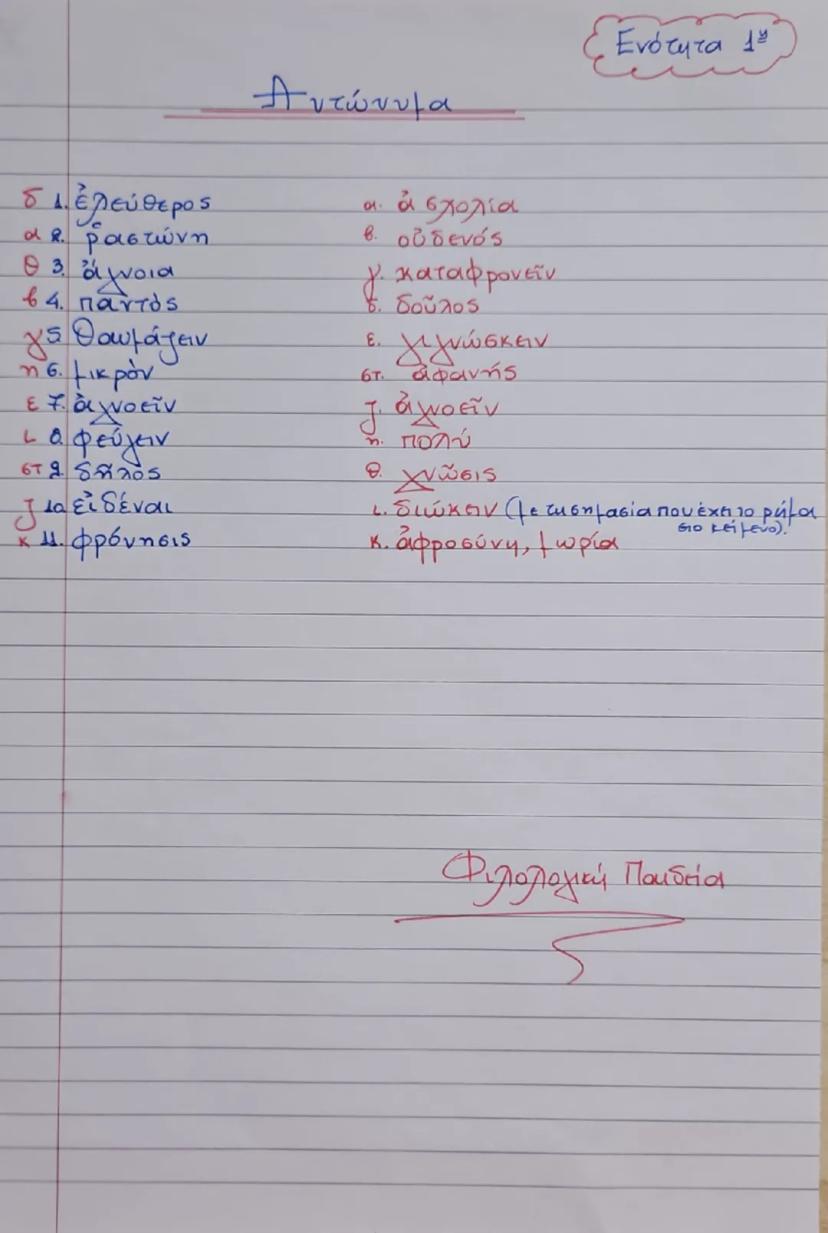 Ενότητα 1η
Αντώνυμα
δ 1. ἐλεύθερος α. ἀσχολία
α 2. ῥαστώνη β. οὐδενός
θ 3. ἄγνοια γ. καταφρονεῖν
β 4. παντὸς δ. δοῦλος
γ 5 θαυμάζειν ε. γιγνώσκειν
η 6. μικρὸν στ. ἀφανής
ε 7. ἀγνοεῖν ζ. ἀγνοεῖν
ι 8. φεύγειν η. πολύ
στ 9. δῆλος θ. γνῶσις
ζ 10 εἰδέναι ι. διώκειν (με τη σημασία που έχει το ρήμα
στο κείμενο).
κ 11. φρόνησις κ. ἀφροσύνη, μωρία
Φιλολογική Παιδεία